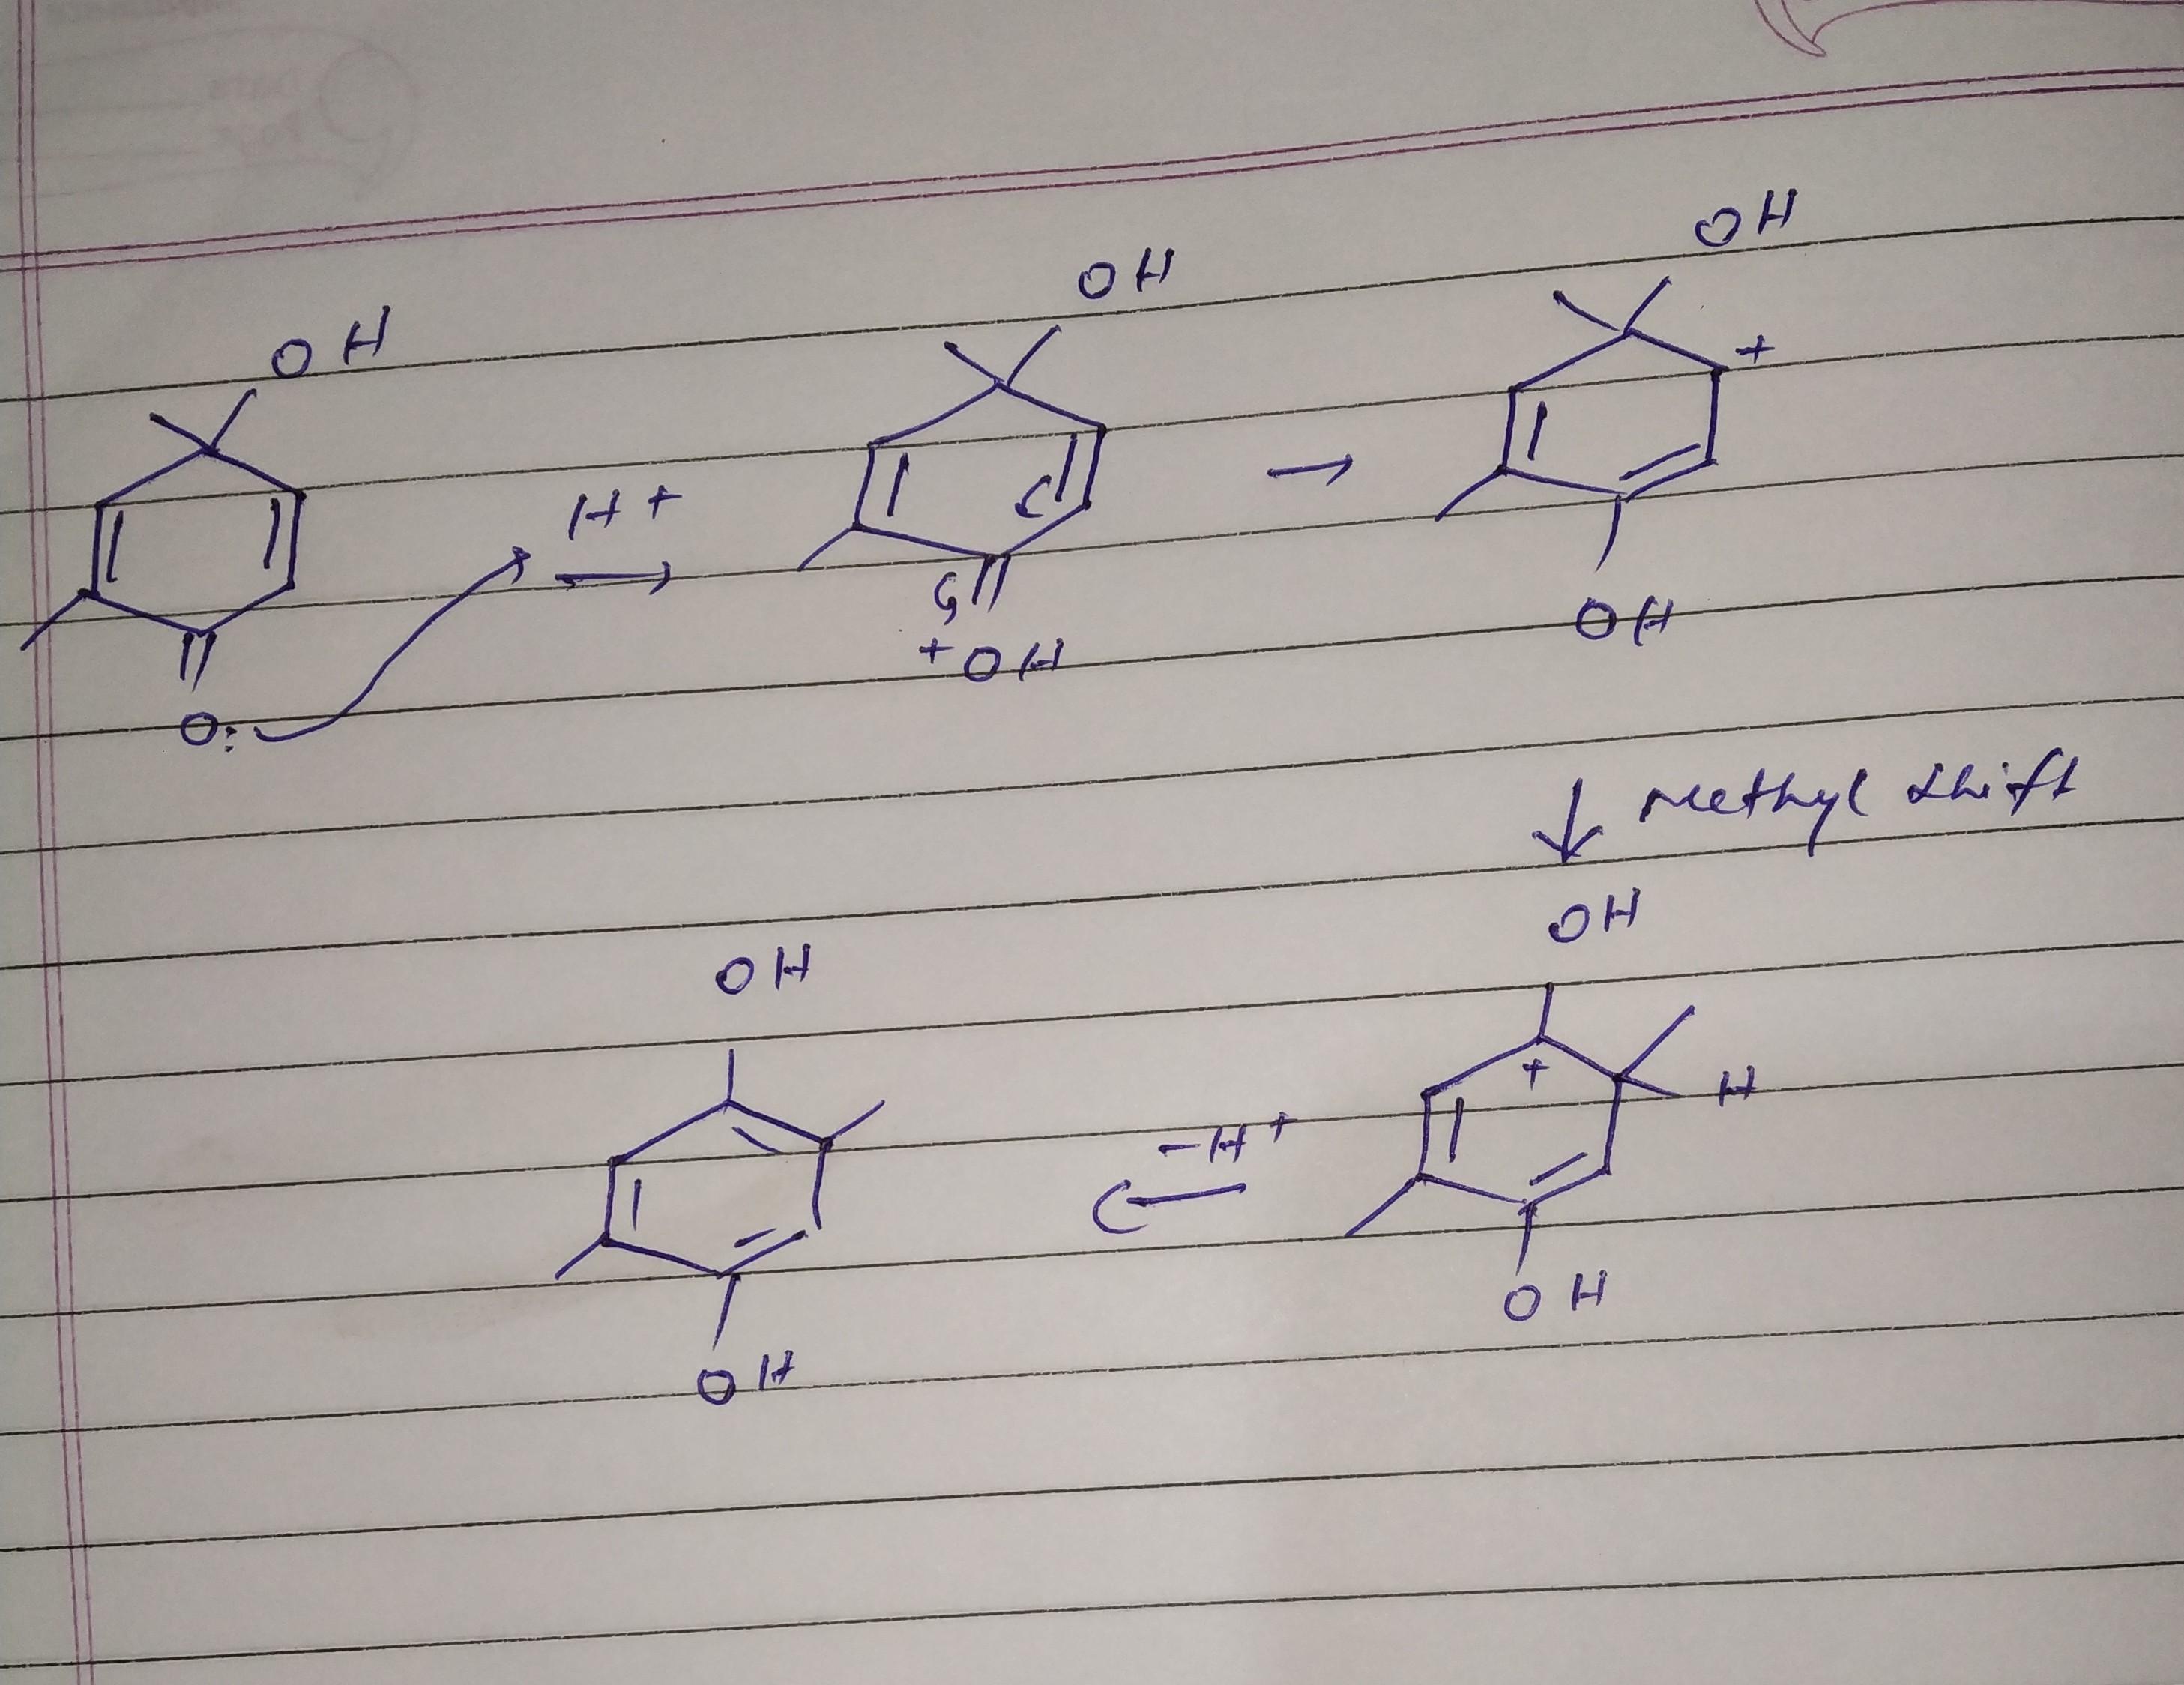 OH
OH
OH
H+
+
O:
+OH
OH
Methyl shift
OH
OH
+
H
-H+
OH
OH